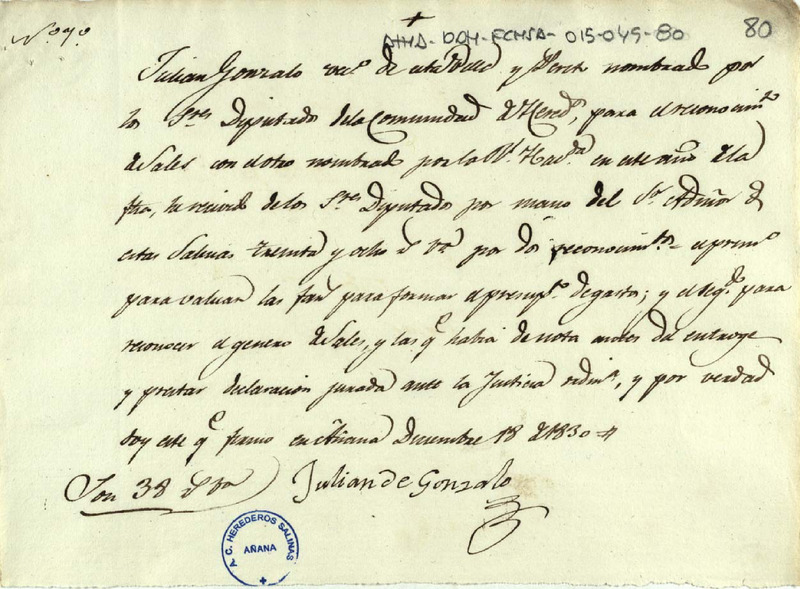 Nº 79.
AHMA-DDH-FCHSA-015-045-80
80
Julian Gonzalo vecº de esta Villa y Perito nombrado por
los Sres Diputados de la Comunidad de Hereds, para el reconocimto
de Sales con el otro nombrado por la Rl. Hacda en este año de la
fha, he recivido de los Sres Diputados por mano del Sr Admor de
estas Salinas treinta y ocho rs vn por dos reconocimtos el primº
para valuar las fans para formar el presupto de gastos; y el segdo para
reconocer el genero de Sales, y las qe habia de nota antes del entroge
y prestar declaracion jurada ante la Justicia ordina, y por verdad
doy este qe firmo en Añana Diciembre 18 de 1830
Son 38 rs vn Julian de Gonzalo
A. C. HEREDEROS SALINAS
AÑANA